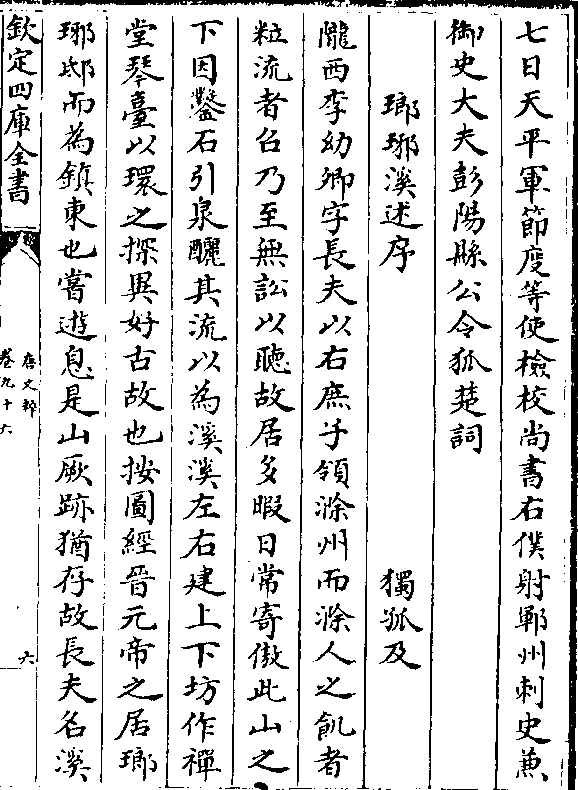 七日天平軍節度等使檢校尚書右僕射鄆州刺史兼
御史大夫彭陽縣公令狐楚詞
瑯琊溪述序 獨孤及
隴西李幼卿字長夫以右庶子領滁州而滁人之飢者
粒流者召乃至無訟以聽故居多暇日常寄傲此山之
下因鑿石引泉釃其流以為溪溪左右建上下坊作禪
堂琴臺以環之探異好古故也按圖經晉元帝之居瑯
琊邸而為鎮東也嘗遊息是山厥跡猶存故長夫名溪
欽定四庫全書
唐文粹
卷九十六
六